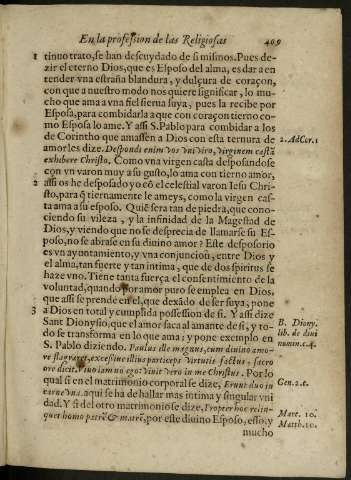 En la profession de las Religiosas 409
1 tinuo trato, se han descuydado de si mismos. Pues de-
zir el eterno Dios, que es Esposo del alma, es dar a en
tender vna estraña blandura, y dulçura de coraçon,
con que a nuestro modo nos quiere significar, lo mu-
cho que ama a vna fiel sierua suya, pues la recibe por
Esposa, para combidarla a que con coraçon tierno co-
mo Esposo lo ame. Y assi S. Pablo para combidar a los
de Corintho que amassen a Dios con esta ternura de
amor les dize. Despondi enim vos vni viro, virginem castā
exhibere Christo. Como vna virgen casta desposandose
con vn varon muy a su gusto, lo ama con tierno amor,
2 assi os he desposado yo cō el celestial varon Iesu Chri-
sto, para q̄ tiernamente le ameys, como la virgen cas-
ta ama a su esposo. Quiē sera tan de piedra, que cono-
ciendo su vileza, y la infinidad de la Magestad de
Dios, y viendo que no se desprecia de llamarse su Es-
poso, no se abrase en su diuino amor? Este desposorio
es vn ayuntamiento, y vna conjunciō, entre Dios y
el alma, tan fuerte y tan intima, que de dos spiritus se
haze vno. Tiene tanta fuerça el consentimiento de la
voluntad, quando por amor puro se emplea en Dios,
que assi se prende en el, que dexādo de ser suya, pone
3 a Dios en total y cumplida possession de si. Y assi dize
Sant Dionysio, que el amor saca al amante de si, y to-
do se transforma en lo que ama; y pone exemplo en
S. Pablo diziendo. Paulus ille magnus, cum diuino amo-
re flagraret, excessiue istius particeps virtutis factus, sacro
ore dicit. Viuo iam no ego: viuit vero in me Christus. Por lo
qual si en el matrimonio corporal se dize, Erunt duo in
carne vna. aqui se ha de hallar mas intima y singular vni
dad. Y si del otro matrimonio se dize, Propter hoc relin-
quet homo patrē & matrē, por este diuino Esposo, esso, y
mucho
2. Ad Cor. 1
B. Diony.
lib. de diui
nomin. c. 4.
Gen. 2. c.
Marc. 10.
Matth. 10.